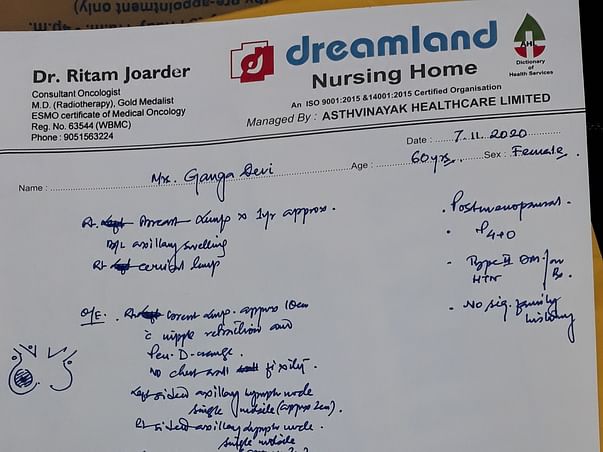 pre-appointment only)
Dr. Ritam Joarder
Consultant Oncologist
M.D. (Radiotherapy), Gold Medalist
ESMO certificate of Medical Oncology
Reg. No. 63544 (WBMC)
Phone : 9051563224
dreamland
Nursing Home
An ISO 9001:2015 &14001:2015 Certified Organisation
Managed By : ASTHVINAYAK HEALTHCARE LIMITED
AHL
Dictionary of
Health Services
Date : 7.11.2020
Name : Mrs. Ganga Devi Age : 60yrs. Sex : Female.
Rt. breast lump x 1yr approx.
B/L axillary swelling
Rt cervical lump
· Postmenopausal.
· P4+0
- Type II DM - / on
HTN Rx.
- No sig. family
history
O/E. Rt breast lump. approx 10cm
c nipple retraction and
Peu-D-orange.
No chest wall fixity.
Left sided axillary lymph node
single mobile (approx 2cm).
Rt sided axillary lymph node.
single mobile